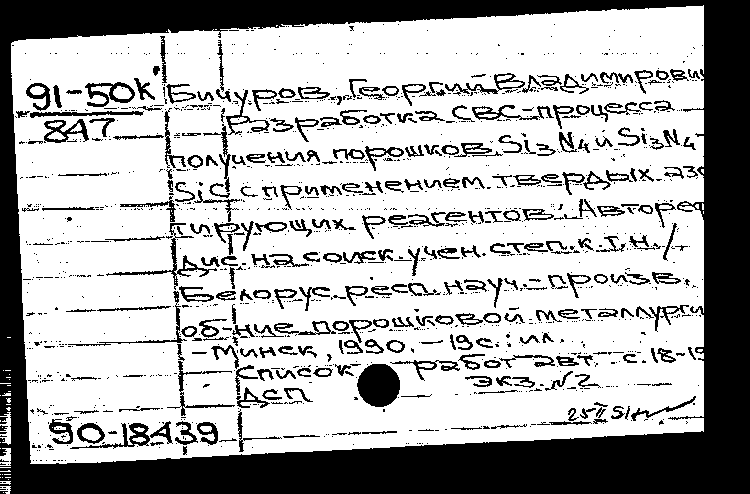 91-50К Бичуров, Георгий Владимирови
847 Разработка СВС-процесса
получения порошков Si3N4 и Si3N4-
SiC с применением твердых азо
тирующих реагентов: Авторе
дис. на соиск. учен. степ. к.т.н./
Белорус. респ. науч.-произв.
об-ние порошковой металлурги
-Минск, 1990.-19с.:ил.
Список работ авт. с.18-19
ДСП Экз. №2
90-18439